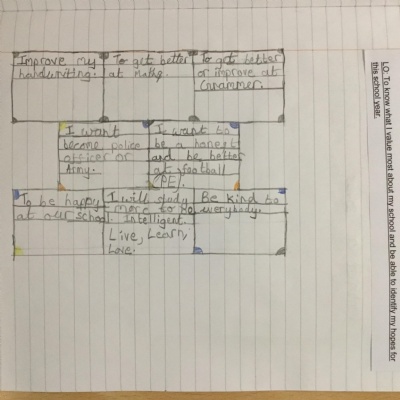 Improve my
handwriting.
To get better
at maths.
To get better
or improve at
Grammer.
I want
become police
officer or
Army.
I want to
be a honest
and be better
at football
(PE).
To be happy
at our school
I will study
more to be
Intelligent
Live, Learn,
Love.
Be kind to
everybody.
LO: To know what I value most about my school and be able to identify my hopes for
this school year.